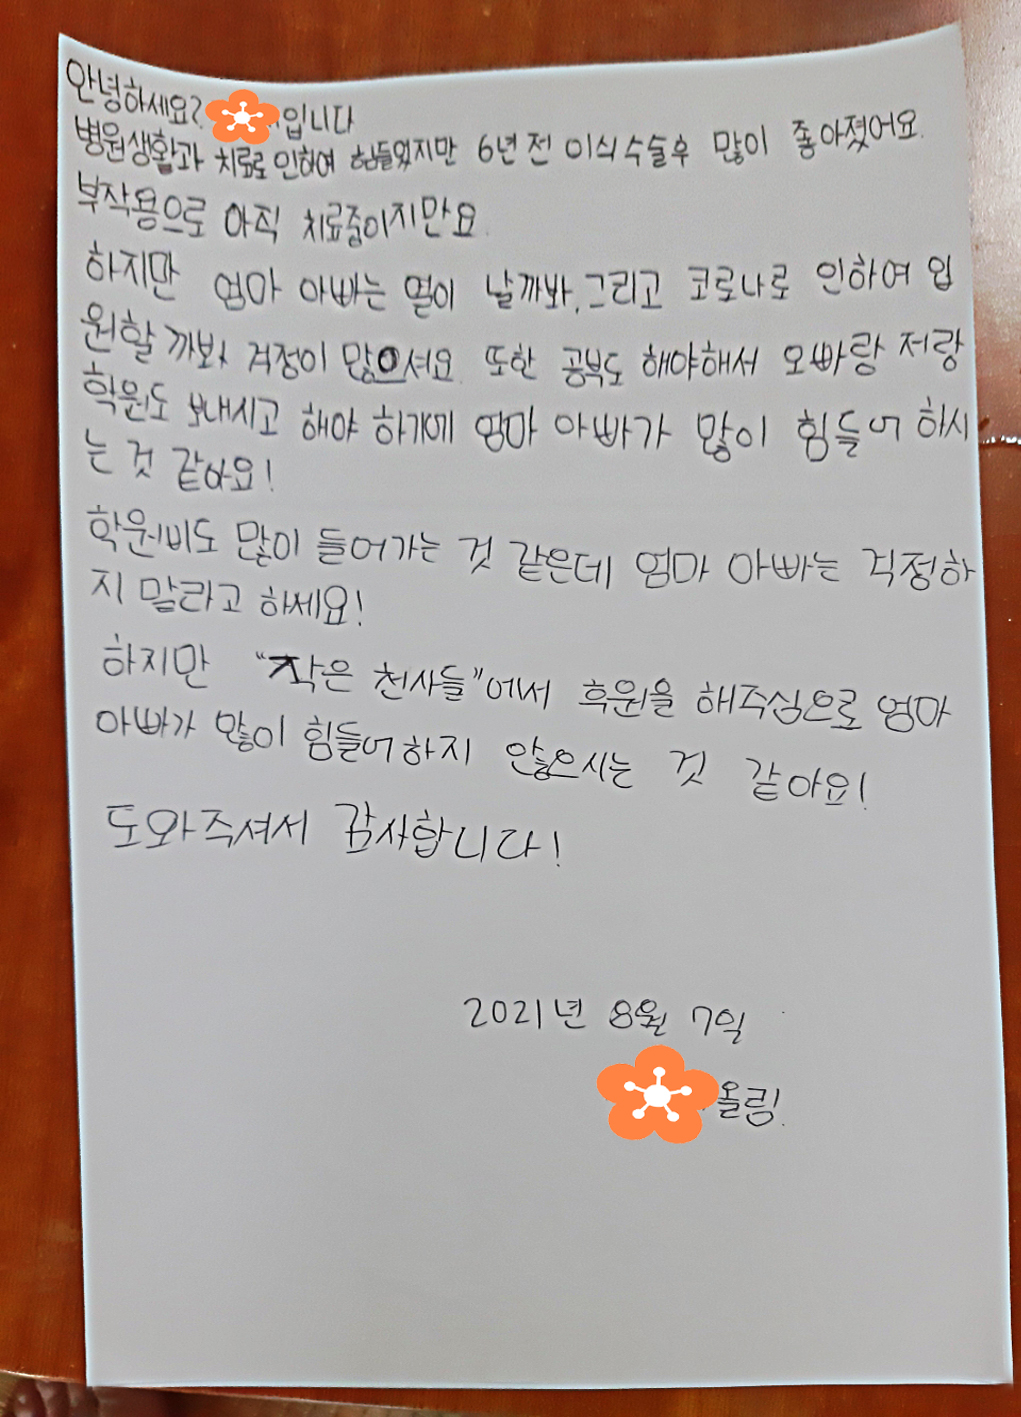 안녕하세요? 입니다
병원생활과 치료로 인하여 힘들었지만 6년 전 이식수술후 많이 좋아졌어요.
부작용으로 아직 치료중이지만요.
하지만 엄마 아빠는 열이 날까봐, 그리고 코로나로 인하여 입
원할 까봐 걱정이 많으셔요. 또한 공부도 해야해서 오빠랑 저랑
학원도 보내시고 해야 하기에 엄마 아빠가 많이 힘들어 하시
는 것 같아요!
학원비도 많이 들어가는 것 같은데 엄마 아빠는 걱정하
지 말라고 하세요!
하지만 “작은 천사들”에서 후원을 해주심으로 엄마
아빠가 많이 힘들어하지 않으시는 것 같아요!
도와주셔서 감사합니다!
2021년 8월 7일
올림!